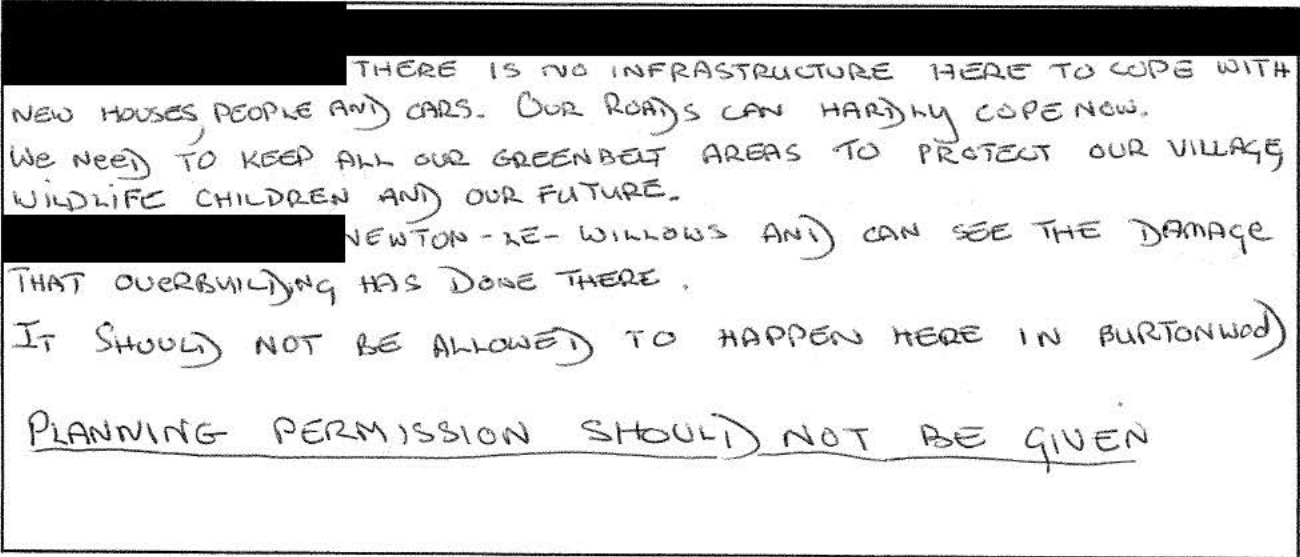 THERE IS NO INFRASTRUCTURE HERE TO COPE WITH
NEW HOUSES, PEOPLE AND CARS. OUR ROADS CAN HARDLY COPE NOW.
WE NEED TO KEEP ALL OUR GREENBELT AREAS TO PROTECT OUR VILLAGE,
WILDLIFE CHILDREN AND OUR FUTURE.
NEWTON-LE-WILLOWS AND CAN SEE THE DAMAGE
THAT OVERBUILDING HAS DONE THERE.
IT SHOULD NOT BE ALLOWED TO HAPPEN HERE IN BURTONWOOD
PLANNING PERMISSION SHOULD NOT BE GIVEN